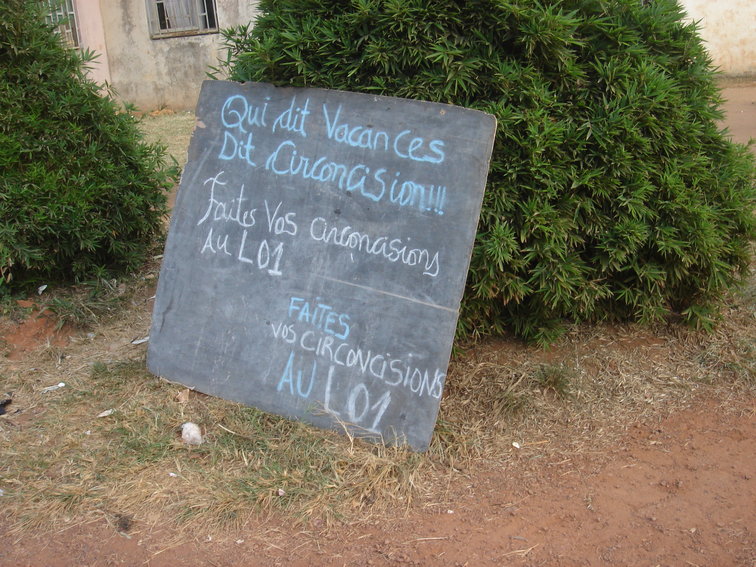 Qui dit Vacances
Dit Circoncision!!!
Faites Vos circoncisions
Au L01
FAITES
VOS CIRCONCISIONS
AU L01